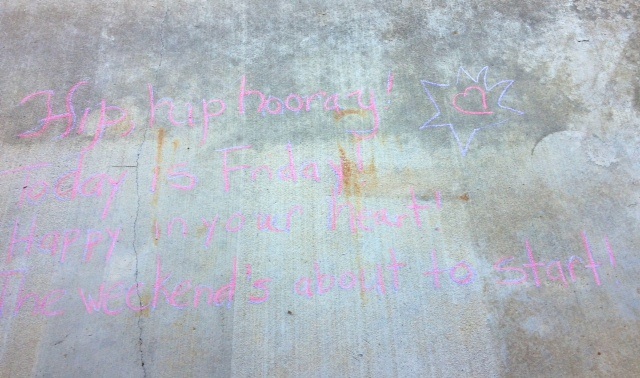 Hip, hip hooray!
Today is Friday!
Happy in your heart!
The weekend's about to start!